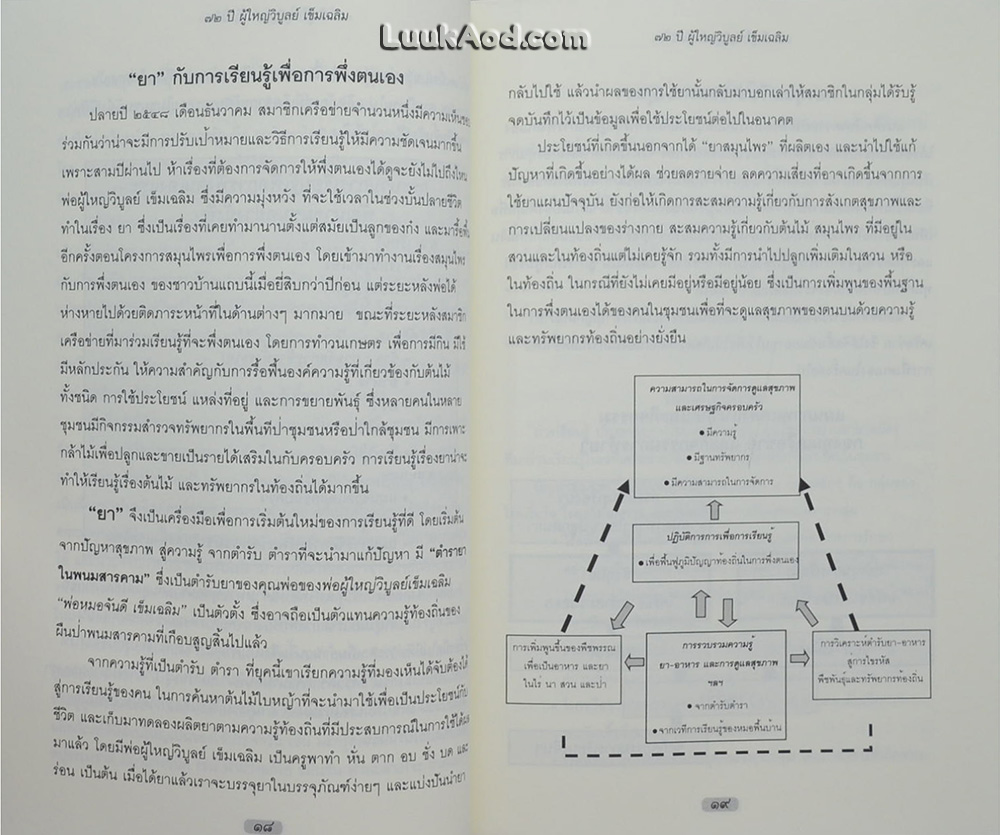 ๗๒ ปี ผู้ใหญ่วิบูลย์ เข็มเฉลิม
LuukAod.com
“ยา” กับการเรียนรู้เพื่อการพึ่งตนเอง
ปลายปี ๒๕๔๘ เดือนธันวาคม สมาชิกเครือข่ายจำนวนหนึ่งมีความเห็นของ
ร่วมกันว่าน่าจะมีการปรับเป้าหมายและวิธีการเรียนรู้ให้มีความชัดเจนมากขึ้น
เพราะสามปีผ่านไป ห้าเรื่องที่ต้องการจัดการให้พึ่งตนเองได้ดูจะยังไม่ไปถึงไหน
พ่อผู้ใหญ่วิบูลย์ เข็มเฉลิม ซึ่งมีความมุ่งหวัง ที่จะใช้เวลาในช่วงบั้นปลายชีวิต
ทำในเรื่อง ยา ซึ่งเป็นเรื่องที่เคยทำมานานตั้งแต่สมัยเป็นลูกของก๋ง และมารื้อฟื้น
อีกครั้งตอนโครงการสมุนไพรเพื่อการพึ่งตนเอง โดยเข้ามาทำงานเรื่องสมุนไพร
กับการพึ่งตนเอง ของชาวบ้านแถบนี้เมื่อยี่สิบกว่าปีก่อน แต่ระยะหลังพ่อได้
ห่างหายไปด้วยติดภาระหน้าที่ในด้านต่างๆ มากมาย ขณะที่ระยะหลังสมาชิก
เครือข่ายที่มาร่วมเรียนรู้ที่จะพึ่งตนเอง โดยการทำวนเกษตร เพื่อการมีกิน มีใช้
มีหลักประกัน ให้ความสำคัญกับการรื้อฟื้นองค์ความรู้ที่เกี่ยวข้องกับต้นไม้
ทั้งชนิด การใช้ประโยชน์ แหล่งที่อยู่ และการขยายพันธุ์ ซึ่งหลายคนในหลาย
ชุมชนมีกิจกรรมสำรวจทรัพยากรในพื้นที่ป่าชุมชนหรือป่าใกล้ชุมชน มีการเพาะ
กล้าไม้เพื่อปลูกและขายเป็นรายได้เสริมในกับครอบครัว การเรียนรู้เรื่องยาน่าจะ
ทำให้เรียนรู้เรื่องต้นไม้ และทรัพยากรในท้องถิ่นได้มากขึ้น
“ยา” จึงเป็นเครื่องมือเพื่อการเริ่มต้นใหม่ของการเรียนรู้ที่ดี โดยเริ่มต้น
จากปัญหาสุขภาพ สู่ความรู้ จากตำรับ ตำราที่จะนำมาแก้ปัญหา มี “ตำรายา
ในพนมสารคาม” ซึ่งเป็นตำรับยาของคุณพ่อของพ่อผู้ใหญ่วิบูลย์เข็มเฉลิม
“พ่อหมอจันดี เข็มเฉลิม” เป็นตัวตั้ง ซึ่งอาจถือเป็นตัวแทนความรู้ท้องถิ่นของ
ผืนป่าพนมสารคามที่เกือบสูญสิ้นไปแล้ว
จากความรู้ที่เป็นตำรับ ตำรา ที่ยุคนี้เขาเรียกความรู้ที่มองเห็นได้จับต้องได้
สู่การเรียนรู้ของคน ในการค้นหาต้นไม้ใบหญ้าที่จะนำมาใช้เพื่อเป็นประโยชน์กับ
ชีวิต และเก็บมาทดลองผลิตยาตามความรู้ท้องถิ่นที่มีประสบการณ์ในการใช้ได้ผล
มาแล้ว โดยมีพ่อผู้ใหญ่วิบูลย์ เข็มเฉลิม เป็นครูพาทำ หั่น ตาก อบ ชั่ง บด และ
ร่อน เป็นต้น เมื่อได้ยาแล้วเราจะบรรจุยาในบรรจุภัณฑ์ง่ายๆ และแบ่งปันนำยา
๑๘
๗๒ ปี ผู้ใหญ่วิบูลย์ เข็มเฉลิม
กลับไปใช้ แล้วนำผลของการใช้ยานั้นกลับมาบอกเล่าให้สมาชิกในกลุ่มได้รับรู้
จดบันทึกไว้เป็นข้อมูลเพื่อใช้ประโยชน์ต่อไปในอนาคต
ประโยชน์ที่เกิดขึ้นนอกจากได้ “ยาสมุนไพร” ที่ผลิตเอง และนำไปใช้แก้
ปัญหาที่เกิดขึ้นอย่างได้ผล ช่วยลดรายจ่าย ลดความเสี่ยงที่อาจเกิดขึ้นจากการ
ใช้ยาแผนปัจจุบัน ยังก่อให้เกิดการสะสมความรู้เกี่ยวกับการสังเกตสุขภาพและ
การเปลี่ยนแปลงของร่างกาย สะสมความรู้เกี่ยวกับต้นไม้ สมุนไพร ที่มีอยู่ใน
สวนและในท้องถิ่นแต่ไม่เคยรู้จัก รวมทั้งมีการนำไปปลูกเพิ่มเติมในสวน หรือ
ในท้องถิ่น ในกรณีที่ยังไม่เคยมีอยู่หรือมีอยู่น้อย ซึ่งเป็นการเพิ่มพูนของพื้นฐาน
ในการพึ่งตนเองได้ของคนในชุมชนเพื่อที่จะดูแลสุขภาพของตนบนด้วยความรู้
และทรัพยากรท้องถิ่นอย่างยั่งยืน
ความสามารถในการจัดการดูแลสุขภาพ
และเศรษฐกิจครอบครัว
● มีความรู้
● มีฐานทรัพยากร
● มีความสามารถในการจัดการ
ปฏิบัติการการเพื่อการเรียนรู้
● เพื่อฟื้นฟูภูมิปัญญาท้องถิ่นในการพึ่งตนเอง
การเพิ่มพูนขึ้นของพืชพรรณ
เพื่อเป็นอาหาร และยา
ในไร่ นา สวน และป่า
การรวบรวมความรู้
ยา-อาหาร และการดูแลสุขภาพ
ฯลฯ
● จากตำรับตำรา
● จากเวทีการเรียนรู้ของหมอพื้นบ้าน
การวิเคราะห์ตำรับยา-อาหาร
สู่การไขรหัส
พืชพันธุ์และทรัพยากรท้องถิ่น
๑๙